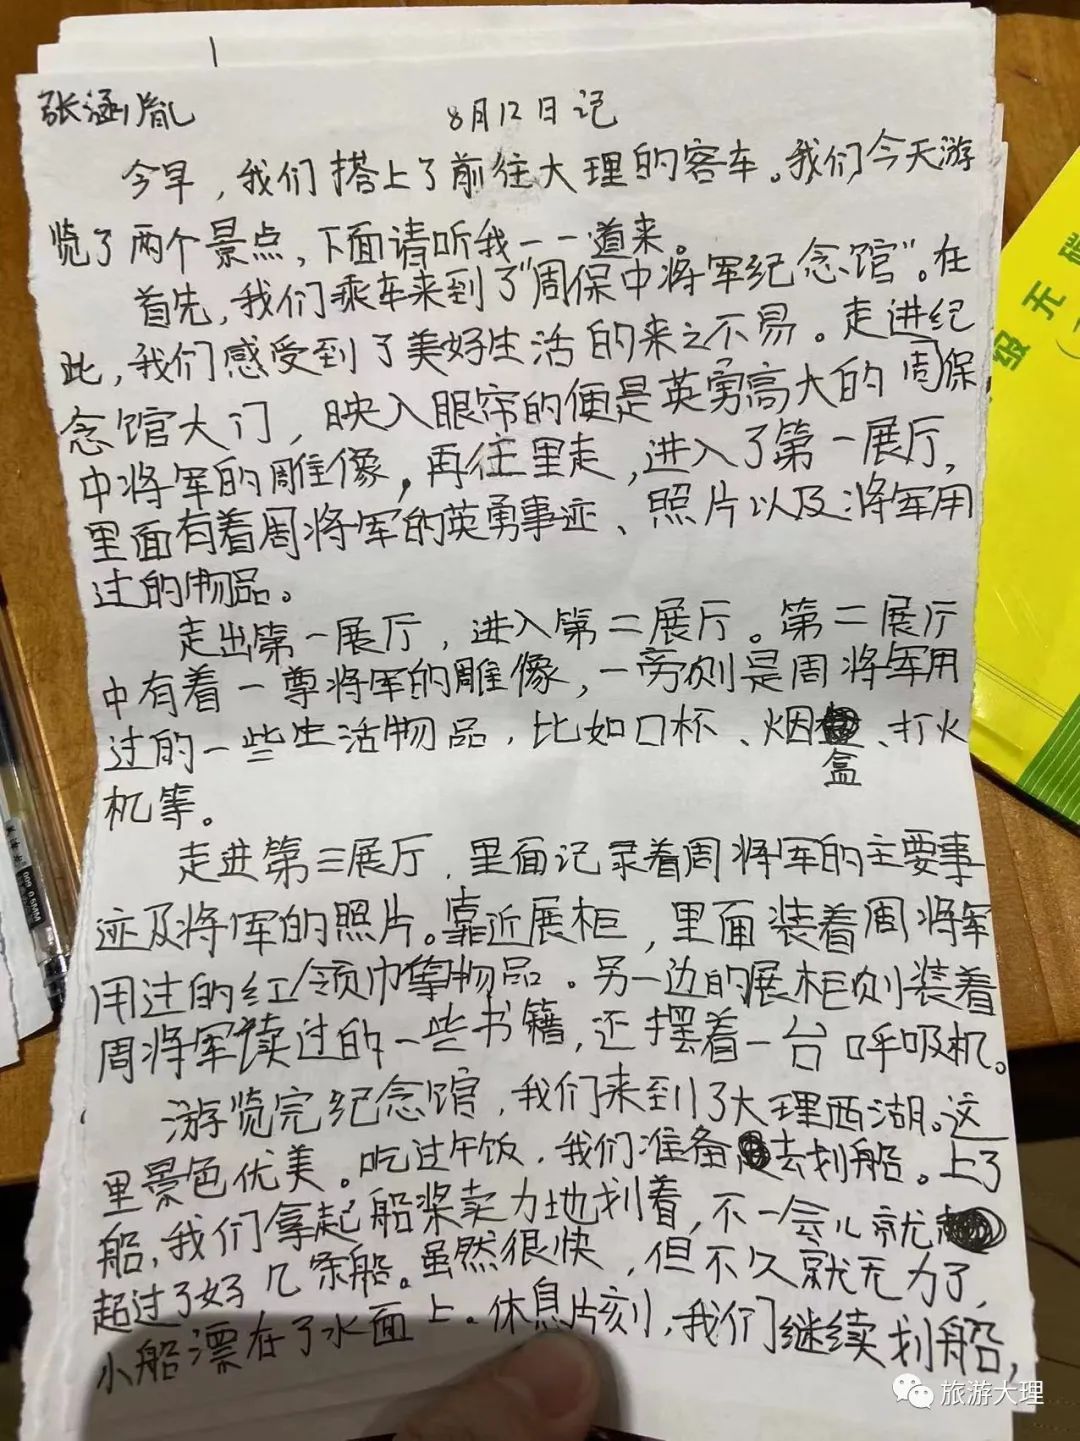 张涵胤 8月12日记
今早，我们搭上了前往大理的客车。我们今天游
览了两个景点，下面请听我一一道来。
首先，我们乘车来到了“周保中将军纪念馆”。在
此，我们感受到了美好生活的来之不易。走进纪
念馆大门，映入眼帘的便是英勇高大的周保
中将军的雕像，再往里走，进入了第一展厅，
里面有着周将军的英勇事迹、照片以及将军用
过的物品。
走出第一展厅，进入第二展厅。第二展厅
中有着一尊将军的雕像，一旁则是周将军用
过的一些生活物品，比如口杯、烟盒、打火
机等。
走进第三展厅，里面记录着周将军的主要事
迹及将军的照片。靠近展柜，里面装着周将军
用过的红领巾等物品。另一边的展柜则装着
周将军读过的一些书籍，还摆着一台呼吸机。
游览完纪念馆，我们来到了大理西湖。这
里景色优美。吃过午饭，我们准备去划船。上了
船，我们拿起船桨卖力地划着，不一会儿就
超过了好几条船。虽然很快，但不久就无力了，
小船漂在了水面上。休息片刻，我们继续划船，
无
级
0.5MM
旅游大理